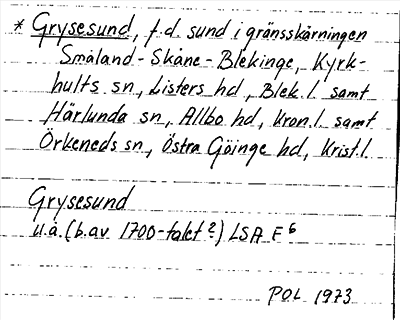 * Grysesund, f.d. sund i gränsskärningen
Småland - Skåne - Blekinge, Kyrk-
hults sn, Listers hd, Blek. l. samt
Härlunda sn, Allbo hd, Kron. l. samt
Örkeneds sn, Östra Göinge hd, Krist. l.
Grysesund
u.å. (b. av 1700-talet?) LSA F 6
POL 1973